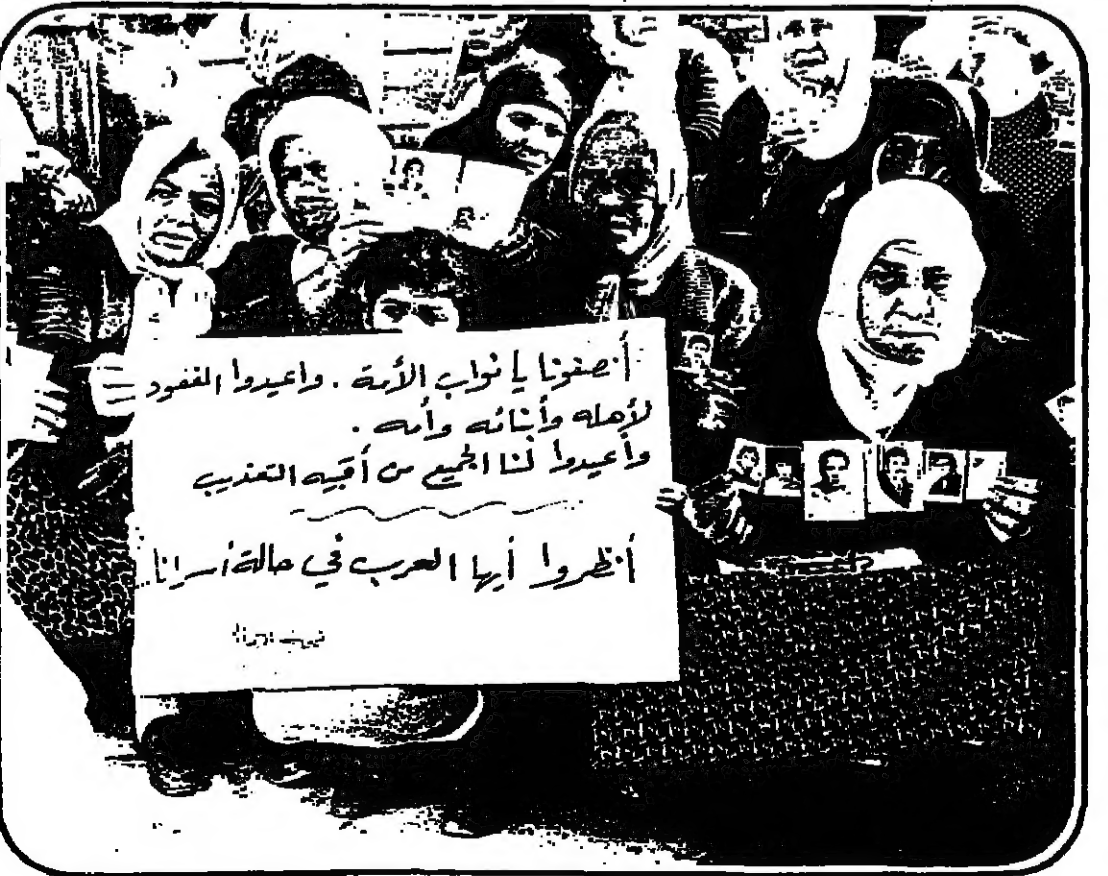 أنصفونا يا نواب الأمة . واعيدوا المفقود
لأهله وأبنائه وأمه .
وأعيدوا لنا الجميع من أقبية التعذيب
أنظروا أيها العرب في حالة أسرانا